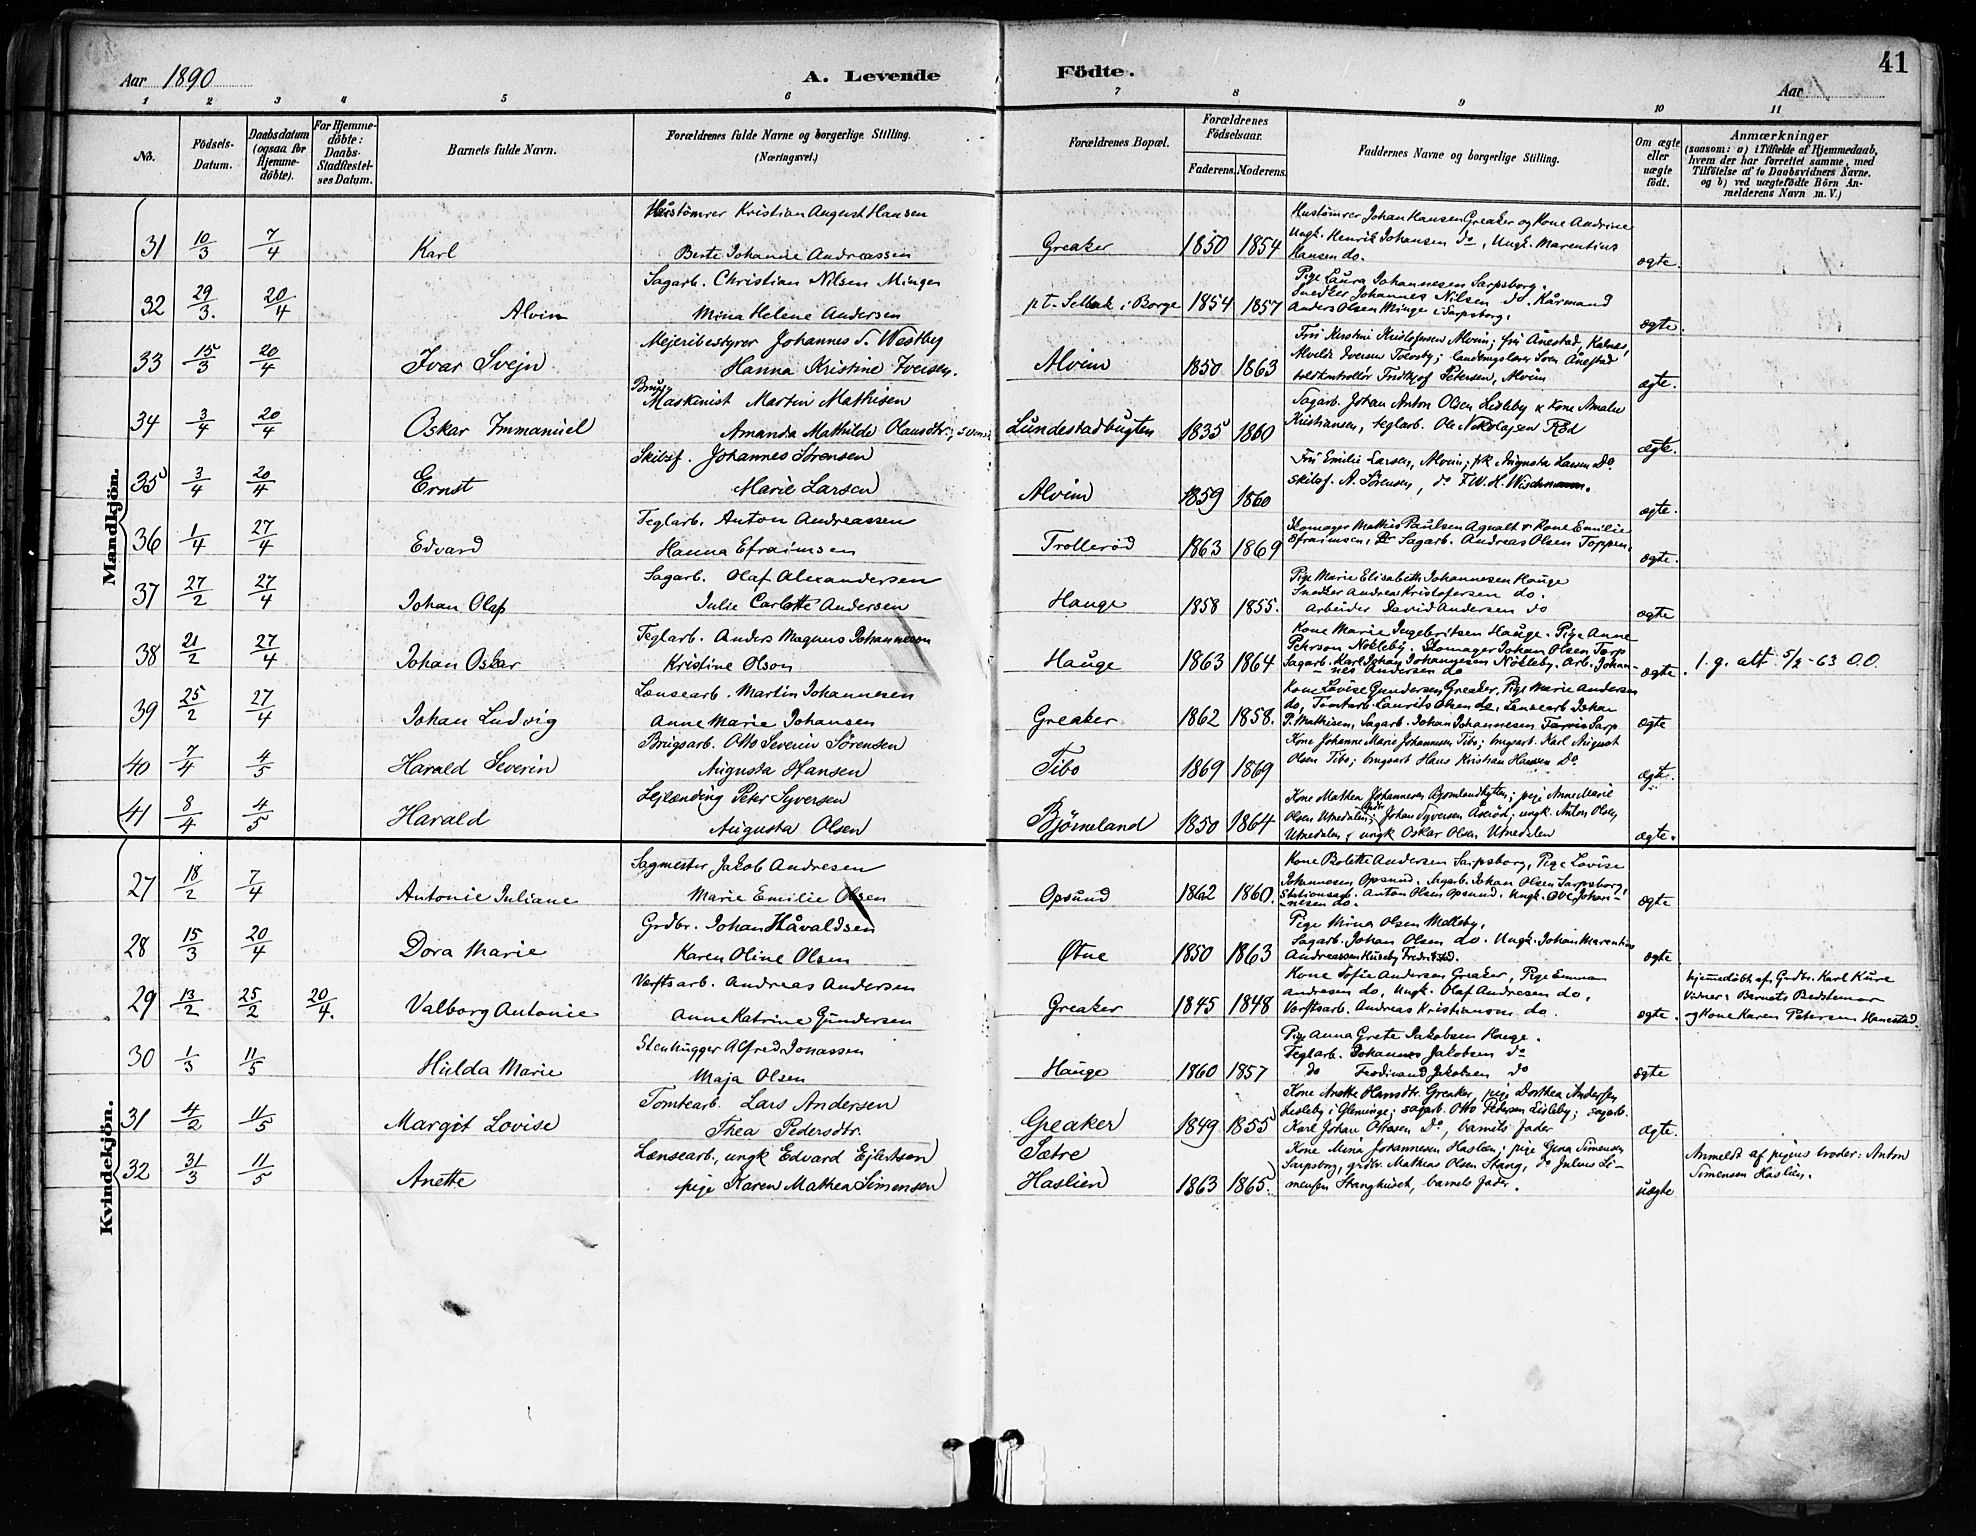 Aar 1890
A. Levende Födte.
41
Aar
1 2 3 4 5 6 7 8 9 10 11
No.
Födsels-Datum.
Daabsdatum (ogsaa for Hjemmedöbte).
For Hjemmedöbte: Daabs-Stadfæstelses Datum.
Barnets fulde Navn.
Forældrenes fulde Navne og borgerlige Stilling. (Næringsvei.)
Forældrenes Bopæl.
Forældrenes Födselsaar.
Faderens. Moderens.
Faddernes Navne og borgerlige Stilling.
Om ægte eller uægte födt.
Anmærkninger
(saasom: a) i Tilfælde af Hjemmedaab, hvem der har forrettet samme, med Tilföielse af to Daabsvidners Navne. og b) ved uægtefödte Börn Anmelderens Navn m. V.)
Mandkjön.
31 10/3 7/4 Karl
Hustømrer Kristian August Hansen
Berte Johanne Andreassen
Greaker 1850 1854
Hustømrer Johan Hansen Greaker og Kone Andrine
Ungk. Henrik Johansen do, Ungk. Marentius
Hansen do.
ægte.
32 29/3. 20/4 Alvin
Sagarb. Christian Nilsen Minger
Mina Helene Andersen
p t. i Borge 1854 1857
Pige Laura Johannesen Sarpsborg.
Snedker Johannes Nilsen do. Kårmand
Anders Olsen Minge i Sarpsborg.
ægte.
33 15/3 20/4 Ivar Svejn
Mejeribestyrer Johannes S. Westby
Hanna Kristine Iversen.
Alvim 1850 1863
Fru Kirstine Kristofersen Alvim; fru Ånestad, Kalnes,
Iversen Tøsby; landbrugslærer Søren Ånestad
toldkontrollør Fridthjof Petersen, Alvim
ægte.
34 3/4 20/4 Oskar Immanuel
Brugs
Maskinist Martin Mathisen
Amanda Mathilde Olausdtr.,
Lundestadbugten 1835 1860
Sagarb. Johan Anton Olsen Lisleby & Kone Amalie
Kristiansen, teglarb. Ole Nikolajsen Rød
ægte.
35 3/4 20/4 Ernst
Skibsf. Johannes Sørensen
Marie Larsen
Alvim 1859 1860
Fru Emilie Larsen, Alvim; pk Augusta Larsen Do.
Skibsf. A. Sørensen, do & W. H. Wischmann.
ægte.
36 1/4 27/4 Edvard
Teglarb. Anton Andreassen
Hanna Efraimsen
Trollerød 1863 1869
Skomager Mathis Paulsen Agnalt & Kone Emilie
Efraimsen, Sagarb. Andreas Olsen Toppen.
ægte.
37 27/2 27/4 Johan Olaf
Sagarb. Olaf Alexandersen
Julie Carlotte Andersen
Hauge 1858 1855.
Pige Marie Elisabeth Johannesen Hauge
Snedker Andreas Kristofersen do.
Arbeider David Andersen do
ægte
38 21/2 27/4 Johan Oskar
Teglarb. Anders Magnus Johannesen
Kristine Olson
Hauge 1863 1864
Kone Marie Ingebritsen Hauge. Pige Anne
Peterson Nøkleby. Skomager Johan Olsen Torp
Sagarb. Karl Johan Johannesen Nøkleby. Arb. Johan-
nes Andersen do
ægte.
1. g. att. 5/2 - 63 O.O.
39 25/2 27/4 Johan Ludvig
Lænsearb. Martin Johannesen
Anne Marie Johansen
Greaker 1862 1858.
Kone Lovise Gundersen Greaker, Pige Marie Andersen
do, Tomtarb. Laurits Olsen do, Lensearb. Johan
P. Mathisen, Sagarb. Johan Johannesen Sarp
ægte
40 7/4 4/5 Harald Severin
Brugsarb. Otto Severin Sørensen
Augusta Hansen
Tibo 1869 1869
Kone Johanne Marie Johannesen Tibo; brugsarb. Karl August
Olsen Tibo; brugsarb Hans Kristian Hansen Do.
ægte.
41 8/4 4/5 Harald
Lejlænding Peter Syversen
Augusta Olsen
Bjørneland 1850 1864
Kone Mathea Johannesen; pige Anne Marie
Olsen Utnedalen; Johan Syversen Aserød, ungk. Anton Olsen,
Utnedalen, ungk Oskar Olsen Utnedalen
ægte.
Kvindekjön.
27 18/2 7/4 Antonie Juliane
Sagmester Jakob Andresen
Marie Emilie Olsen
Opsund 1862 1860.
Kone Bolette Andersen Sarpsborg, Pige Lovise
Johannesen Opsund. Sagarb. Johan Olsen Sarpsborg,
Stationsarb. Anton Olsen Opsund. Ungk. Ove Johan-
nesen do.
ægte
28 15/3 20/4 Dora Marie
Grdbr. Johan Håvaldsen
Karen Oline Olsen
Øtne 1850 1863
Pige Mina Olsen Melleby,
Sagarb. Johan Olsen do. Ungk. Johan Marentius
Andreassen Huseby Fredrikstad.
ægte
29 13/2 25/2 20/4. Valborg Antonie
Værftsarb. Andreas Andersen
Anne Katrine Gundersen
Greaker 1845 1848
Kone Sofie Andersen Greaker, Pige Emma
Andresen do, Ungk. Olaf Andresen do,
Værftsarb. Andreas Kristiansen do.
ægte.
hjemmedøbt af Grdbr. Karl Kure
Vidner: Barnets Bedstemor
og Kone Karen Petersen Hanestad.
30 1/3 11/5 Hulda Marie
Stenhugger Alfred Jonassen
Maja Olsen
Hauge 1860 1857
Pige Anna Grete Jakobsen Hauge.
Teglarb. Johannes Jakobsen do
do Ferdinand Jakobsen do
ægte
31 4/2 11/5 Margit Lovise
Tomtearb. Lars Andersen
Thea Pedersdtr.
Greaker 1849 1855
Kone Anette Hansdtr. Greaker, pige Dorthea Andersen
Lisleby i Glemminge; sagarb. Otto Petersen Lisleby; sagarb.
Karl Johan Ottesen Do, barnets fader
ægte.
32 31/3 11/5 Anette
Lænsearb., ungk Edvard Ejlertsen
pige Karen Mathea Simensen
Sætre
Haslien 1863 1865.
Kone Mina Johannesen Haslien; pige Gena Simensen
Sarpsborg, grdbr. Mathias Olsen Stang, do Julius Si-
mensen Stanghuset, barnets fader.
uægte
Anmeldt af pigens broder: Anton
Simensen Haslien.